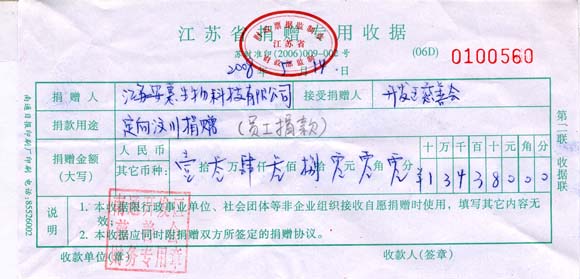 江苏省捐赠专用收据
江苏省
苏财准印(2006)009-002号
(06D)
0100560
2008年5月14日
捐赠人
生物科技有限公司
接受捐赠人
开发区慈善会
捐款用途
定向汶川捐赠（员工捐款）
捐赠金额
(大写)
人民币
其它币种：
壹拾叁万肆仟叁佰捌拾零元零角零分
十万千百十元角分
¥13438000
说明
1. 本收据限行政事业单位、社会团体等非企业组织接收自愿捐赠时使用，填写其它内容无效；
2. 本收据应同时附捐赠双方所签定的捐赠协议。
收款单位(章)
收款人(签章)
财务专用章
第二联
收据联
南通日报印刷厂印刷 电话:85526002